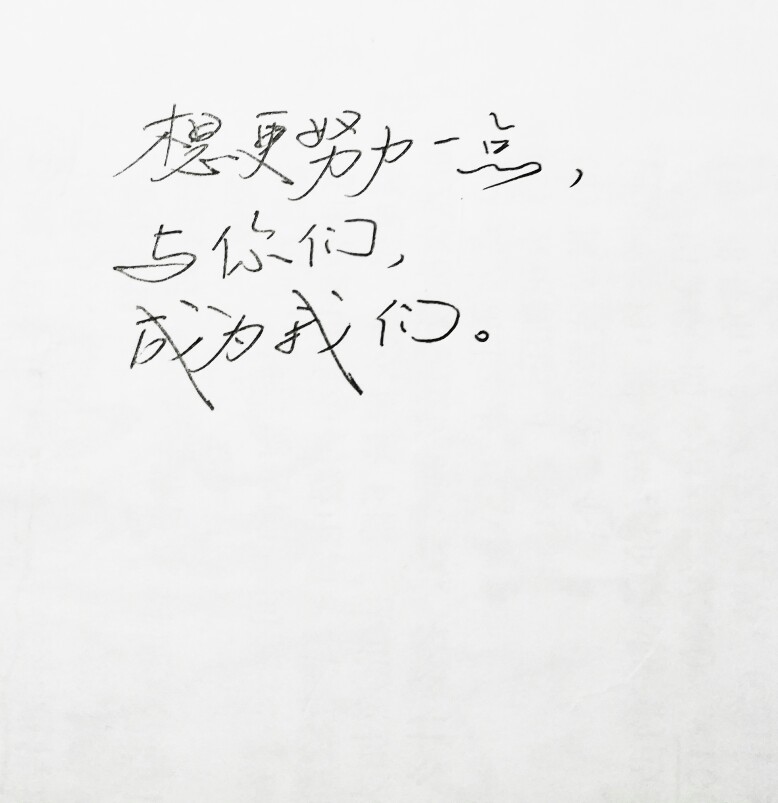 想更努力一点，
与你们，
成为我们。